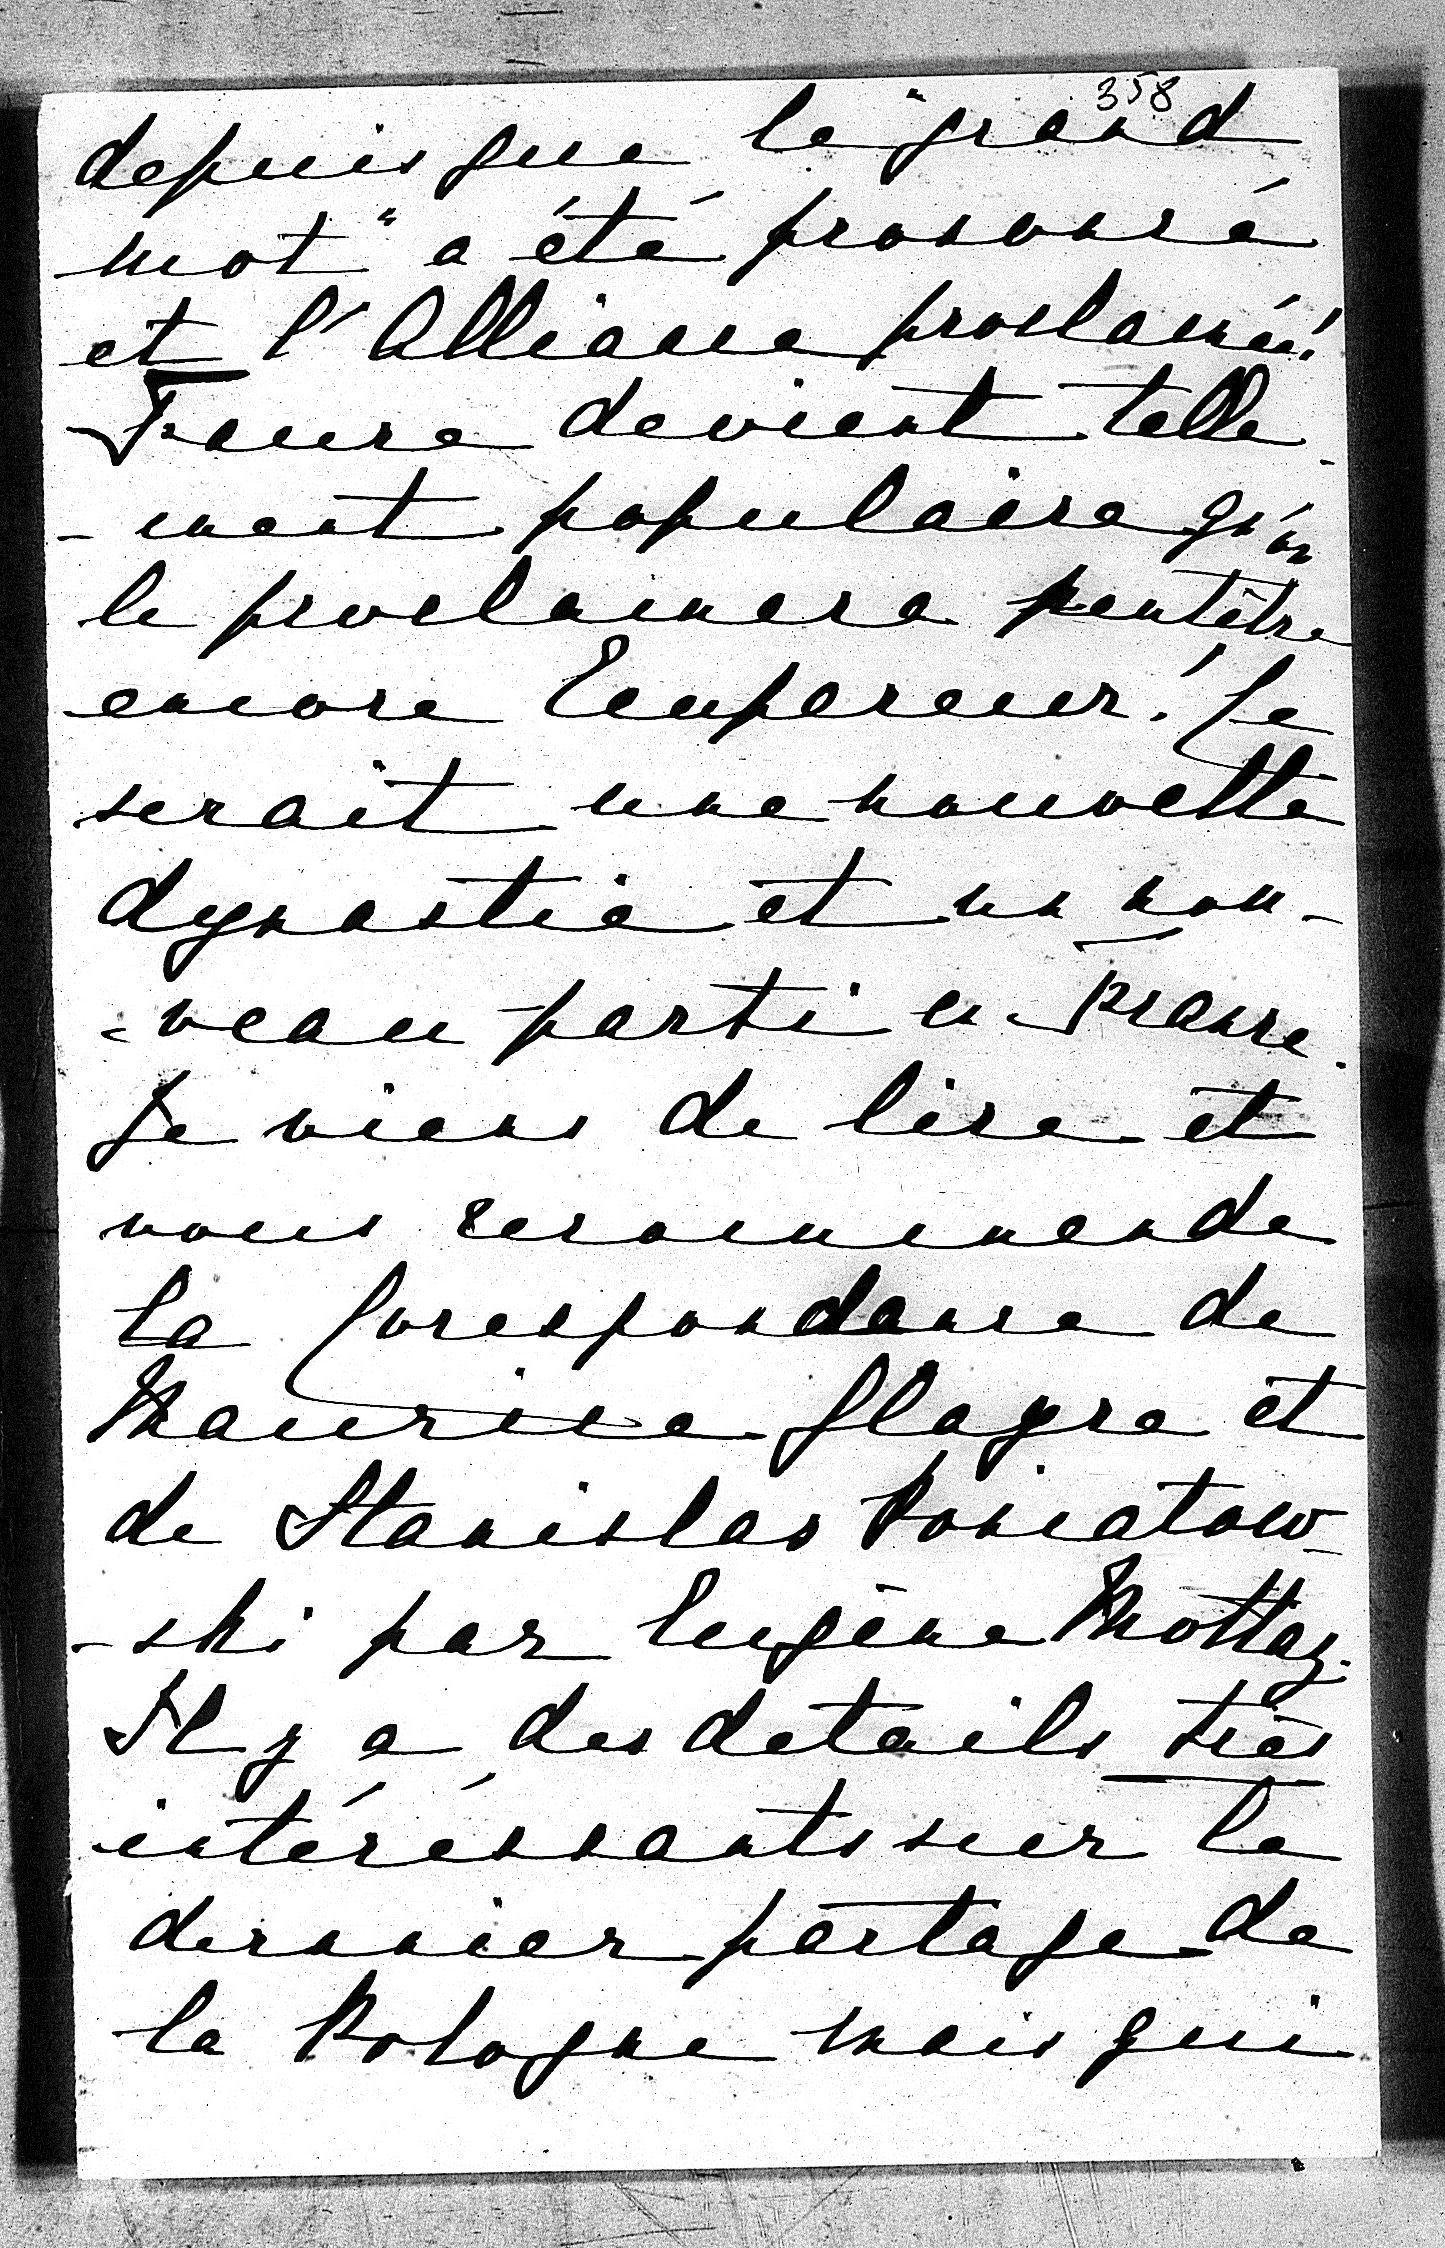 358
depuis que le "grand
mot" a été prononcé
et l'Alliance proclamée!
Faure devient telle-
-ment populaire qu'on
le proclamera peutêtre
encore Empereur! Ce
serait une nouvelle
dynastie et un nou-
-veau parti en France.
Je viens de lire et
vous recommende
la Correspondance de
Maurice Glayre et
de Stanislas Poniatow-
-ski par Eugène Mottaz.
Il y a des détails très
intéréssants sur le
dernier partage de
la Pologne mais qui